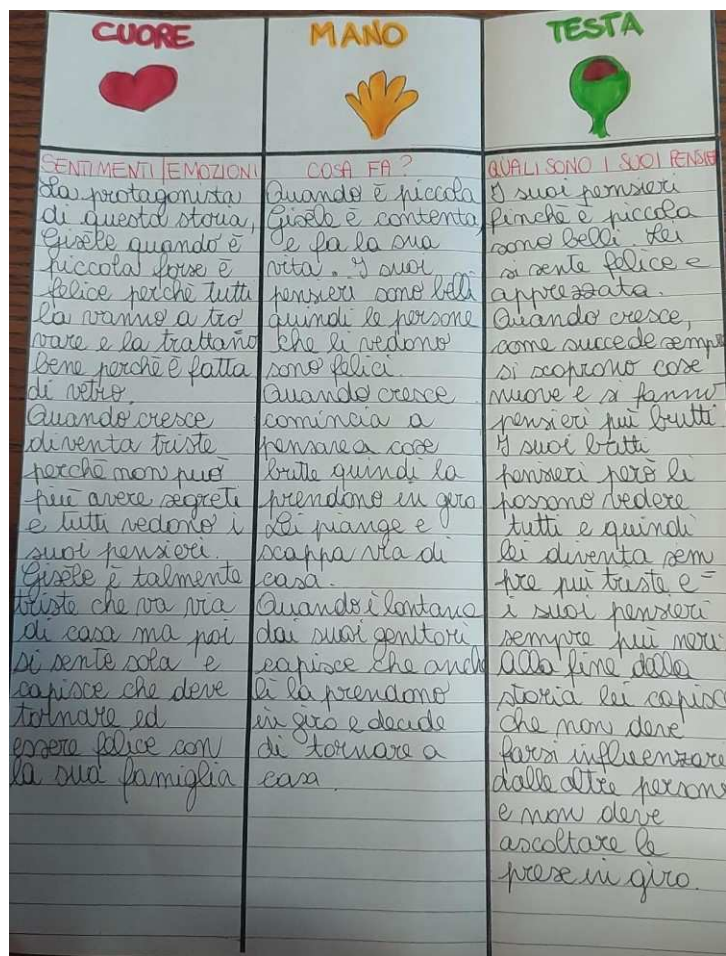 CUORE
SENTIMENTI/EMOZIONI
La protagonista
di questa storia,
Gisèle quando è
piccola forse è
felice perchè tutti
la vanno a tro
vare e la trattano
bene perchè è fatta
di vetro.
Quando cresce
diventa triste
perchè non può
più avere segreti
e tutti vedono i
suoi pensieri.
Gisèle è talmente
triste che va via
di casa ma poi
si sente sola e
capisce che deve
tornare ed
essere felice con
la sua famiglia
MANO
COSA FA?
Quando è piccola
Gisèle è contenta,
e fa la sua
vita. I suoi
pensieri sono belli
quindi le persone
che li vedono
sono felici.
Quando cresce
comincia a
pensare a cose
brutte quindi la
prendono in giro
Lei piange e
scappa via di
casa.
Quando è lontana
dai suoi genitori
capisce che anch
lì la prendono
in giro e decide
di tornare a
casa.
TESTA
QUALI SONO I SUOI PENSIE
I suoi pensieri
finchè è piccola
sono belli. Lei
si sente felice e
apprezzata.
Quando cresce,
come succede sempre
si scoprono cose
nuove e si fanno
pensieri più brutti.
I suoi brutti
pensieri però li
possono vedere
tutti e quindi
lei diventa sem
pre più triste e=
i suoi pensieri
sempre più neri
alla fine della
storia lei capisc
che non deve
farsi influenzare
dalle altre person
e non deve
ascoltare le
prese in giro.